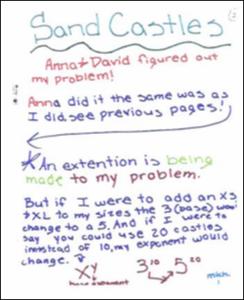 Sand Castles
Anna & David figured out
my problem!
Anna did it the same was as
I did. see previous pages!
*An extention is being
made to my problem.
But if I were to add an XS
& XL to my sizes the 3 (base) would
change to a 5. And if I were to
say you could use 20 castles
instead of 10, my exponent would
change.
3¹⁰ → 5²⁰